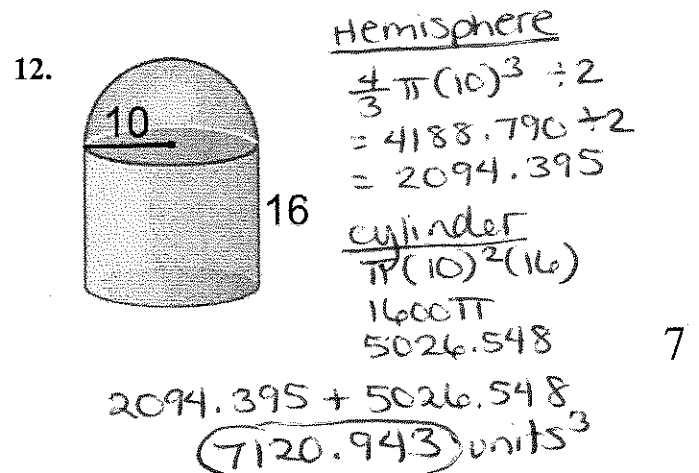 12.
10
16
Hemisphere
4/3 π(10)³ ÷2
= 4188.790 ÷2
= 2094.395
cylinder
π(10)²(16)
1600π
5026.548
7
2094.395 + 5026.548
7120.943 units³